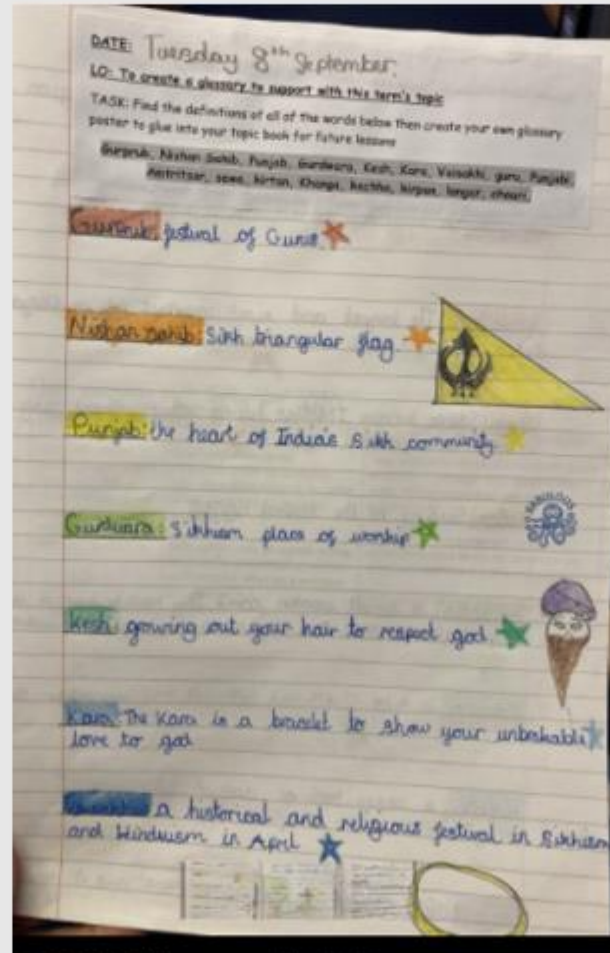 DATE: Tuesday 8th September.
LO: To create a glossary to support with this term's topic
TASK: Find the definitions of all of the words below then create your own glossary
poster to glue into your topic book for future lessons
Gurpurub, Nishan Sahib, Punjab, Gurdwara, Kesh, Kara, Vaisakhi, guru, Punjabi,
Amitritsar, sewa, kirtan, Khanga, kachha, kirpan, langar, chauri,
festival of Gurus
Nishan sahib: Sikh triangular flag
Punjab: the heart of India's Sikh community
Gurdwara: Sikhism place of worship
FABULOUS
Kesh: growing out your hair to respect god.
Kara: The Kara is a bracelet to show your unbrekable
love to god
a historical and religious festival in Sikhism
and Hinduism in April